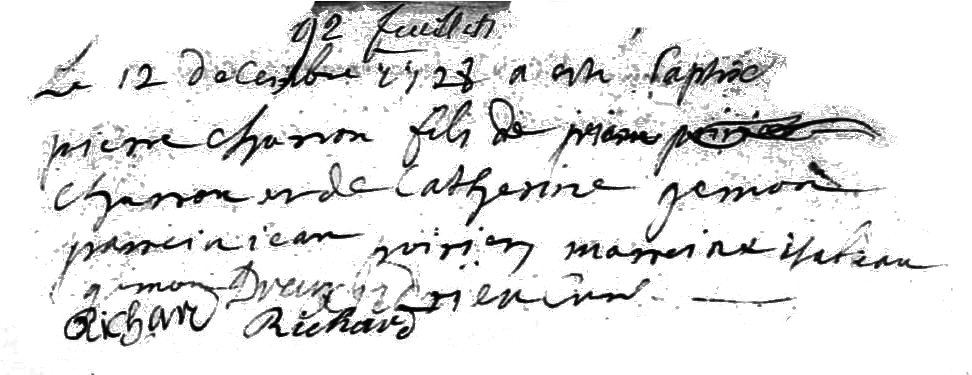 92 feuillets
Le 12 decembre 1728 a este baptisé
pierre charron fils de
charron et de Catherine gemon
parrein iean poirier marreine isabeau
gemon
Richard Richard